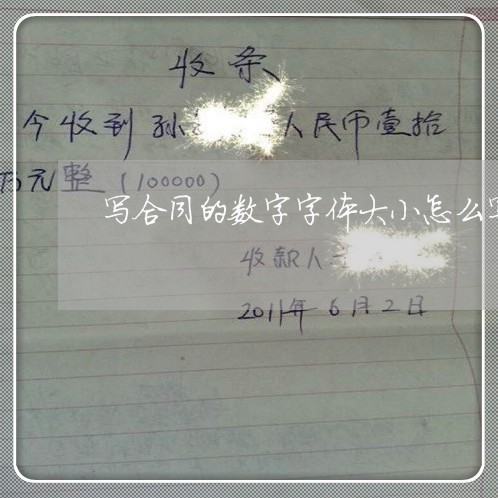 收条
今收到孙 人民币壹拾
万元整(100000)
写合同的数字字体大小怎么写
收款人
2011年6月2日